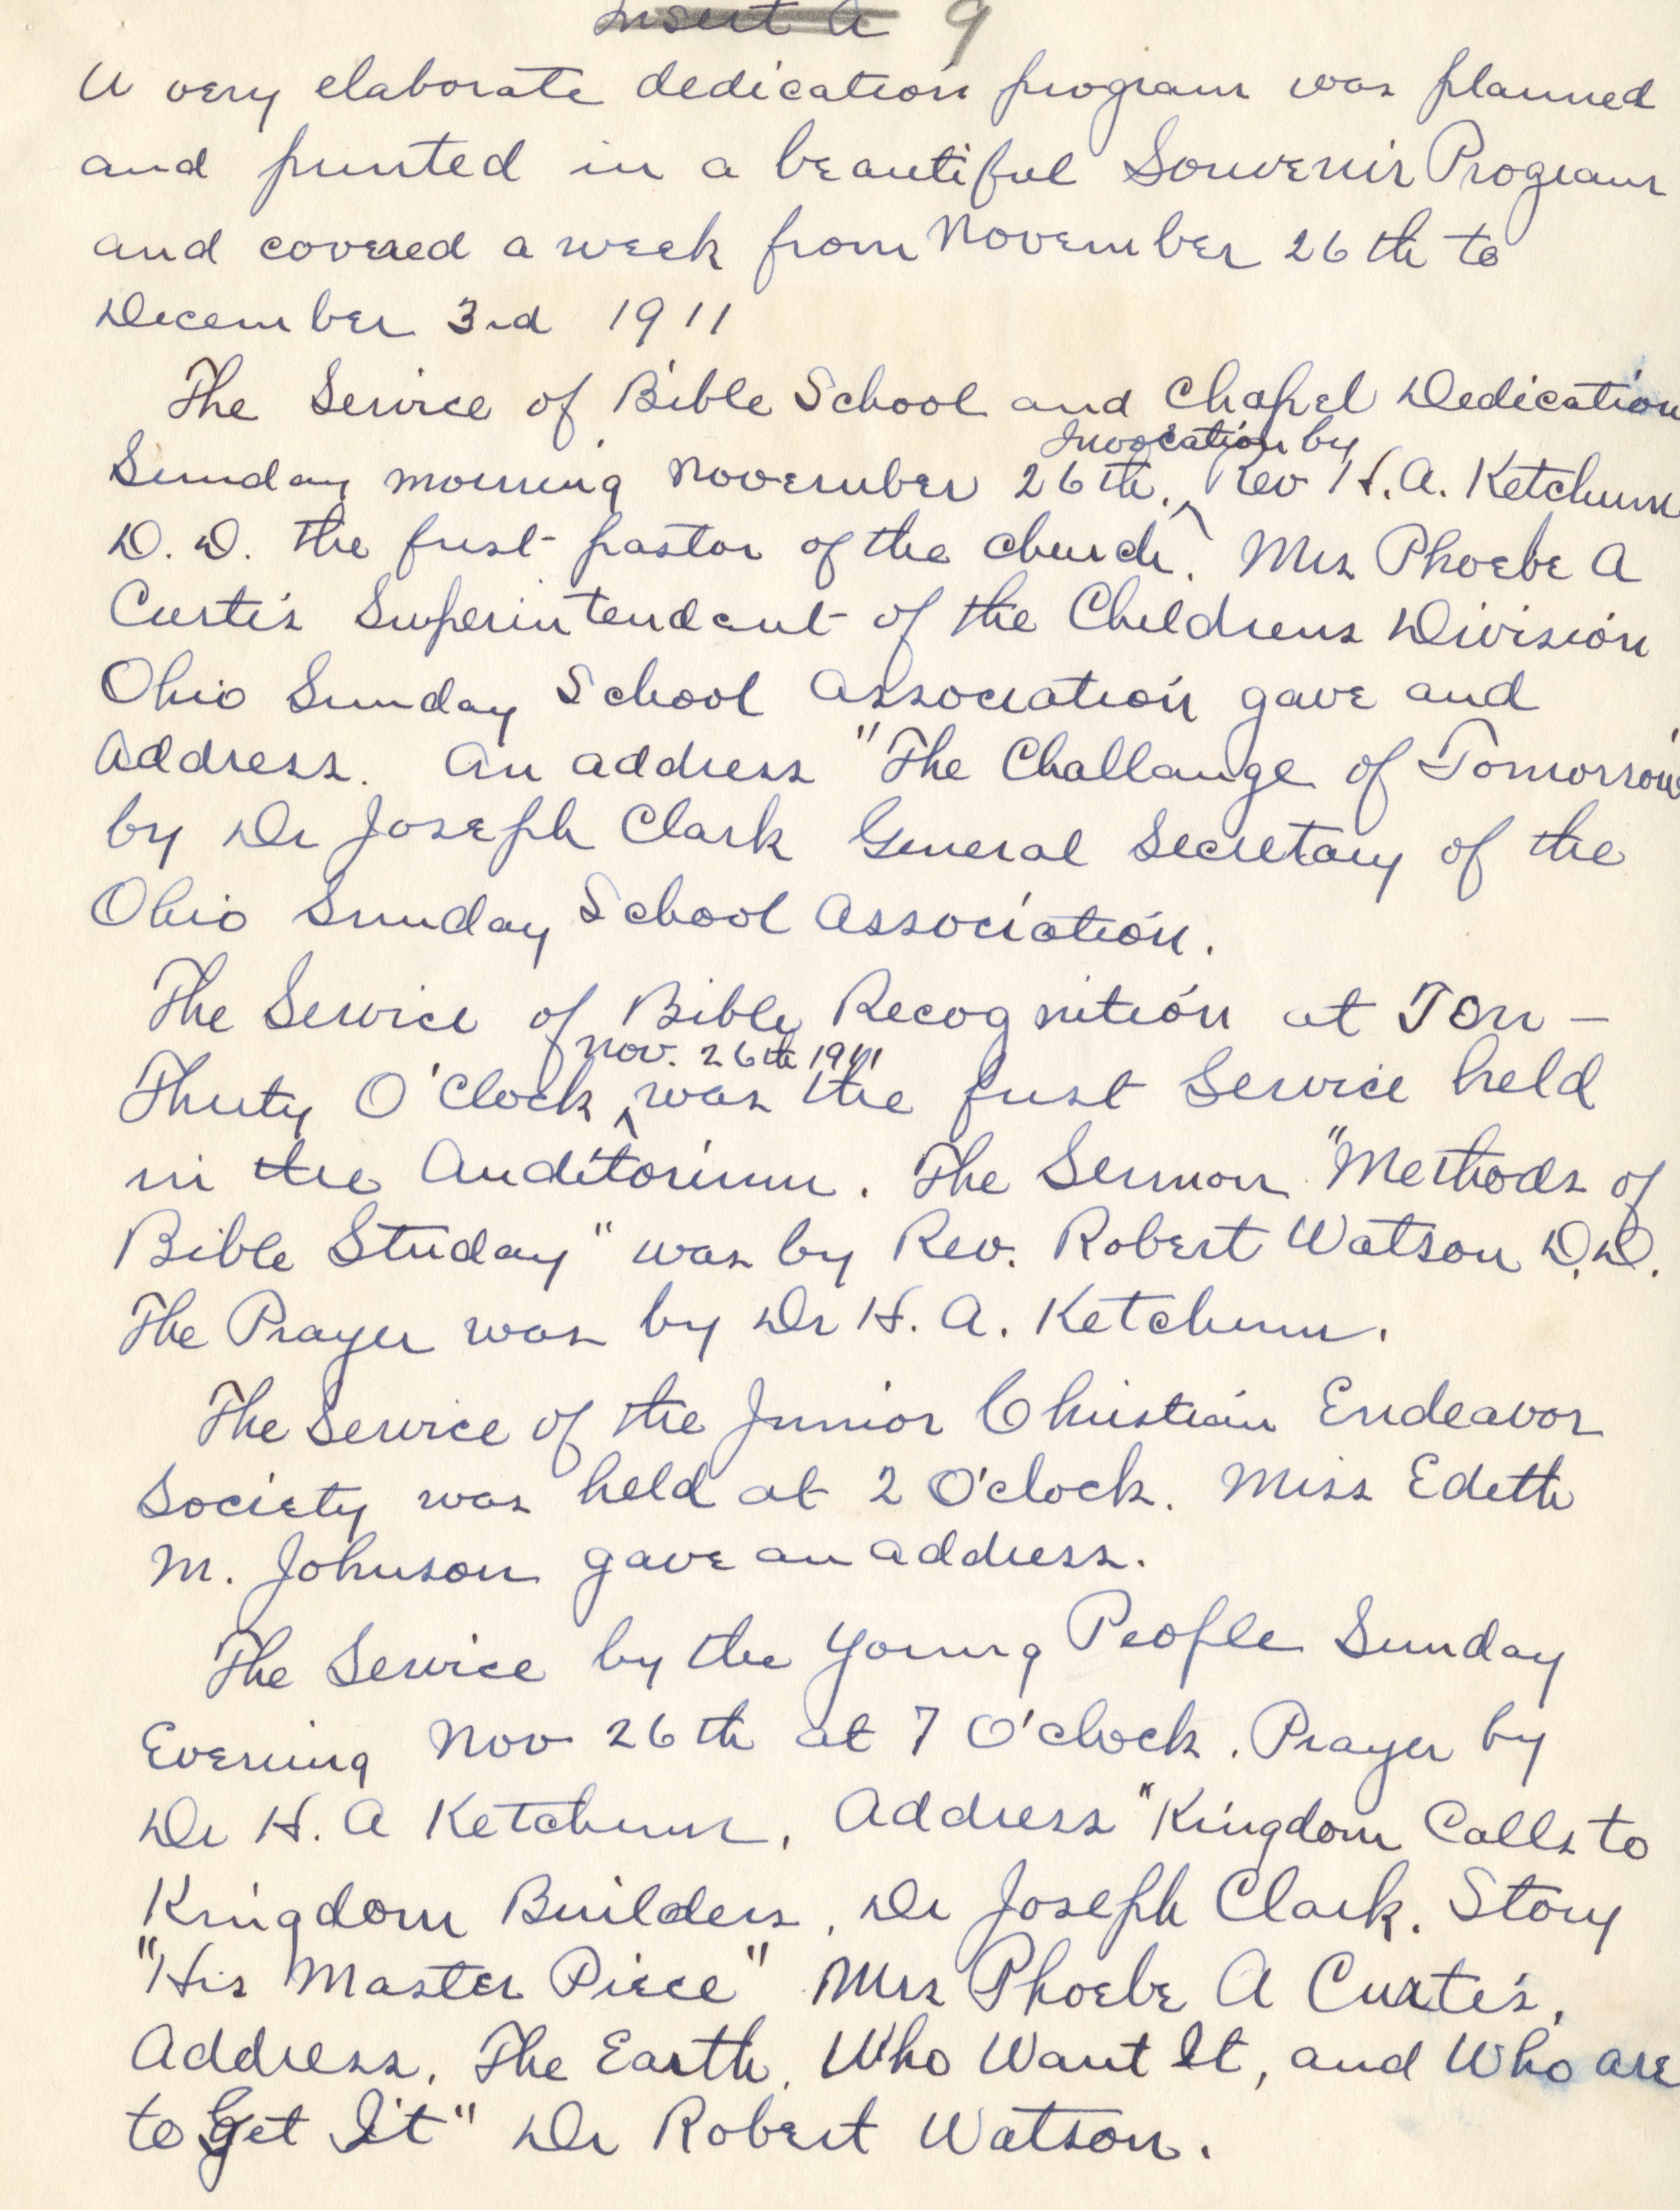 Insert A 9
A very elaborate dedication program was planned
and printed in a beautiful Souvenir Program
and covered a week from November 26th to
December 3rd 1911
The Service of Bible School and Chapel Dedication
Invocation by
Sunday morning November 26th. Rev H. A. Ketchum
D. D. the first pastor of the church. Mrs Phoebe A
Curtis Superintendent of the Childrens Division
Ohio Sunday School Association gave and
Address. An address "The Challange of Tomorrow"
by Dr Joseph Clark General Secretary of the
Ohio Sunday School Association.
The Service of Bible Recognition at Ten -
Nov. 26th 1911
Thirty O'Clock ^ was the first Service held
in the Auditorium. The Sermon "Methods of
Bible Studay" was by Rev. Robert Watson D.D.
The Prayer was by Dr H. A. Ketchum.
The Service of the Junior Christian Endeavor
Society was held at 2 O'clock. Miss Edith
M. Johnson gave an address.
The Service by the Young People Sunday
Evening Nov 26th at 7 O'clock. Prayer by
Dr H. A Ketchum. Address "Kingdom Calls to
Kingdom Builders. Dr Joseph Clark. Story
"His Master Piece" Mrs Phoebe A Curtis.
Address. The Earth. Who Want It, and Who are
to Get It" Dr Robert Watson.